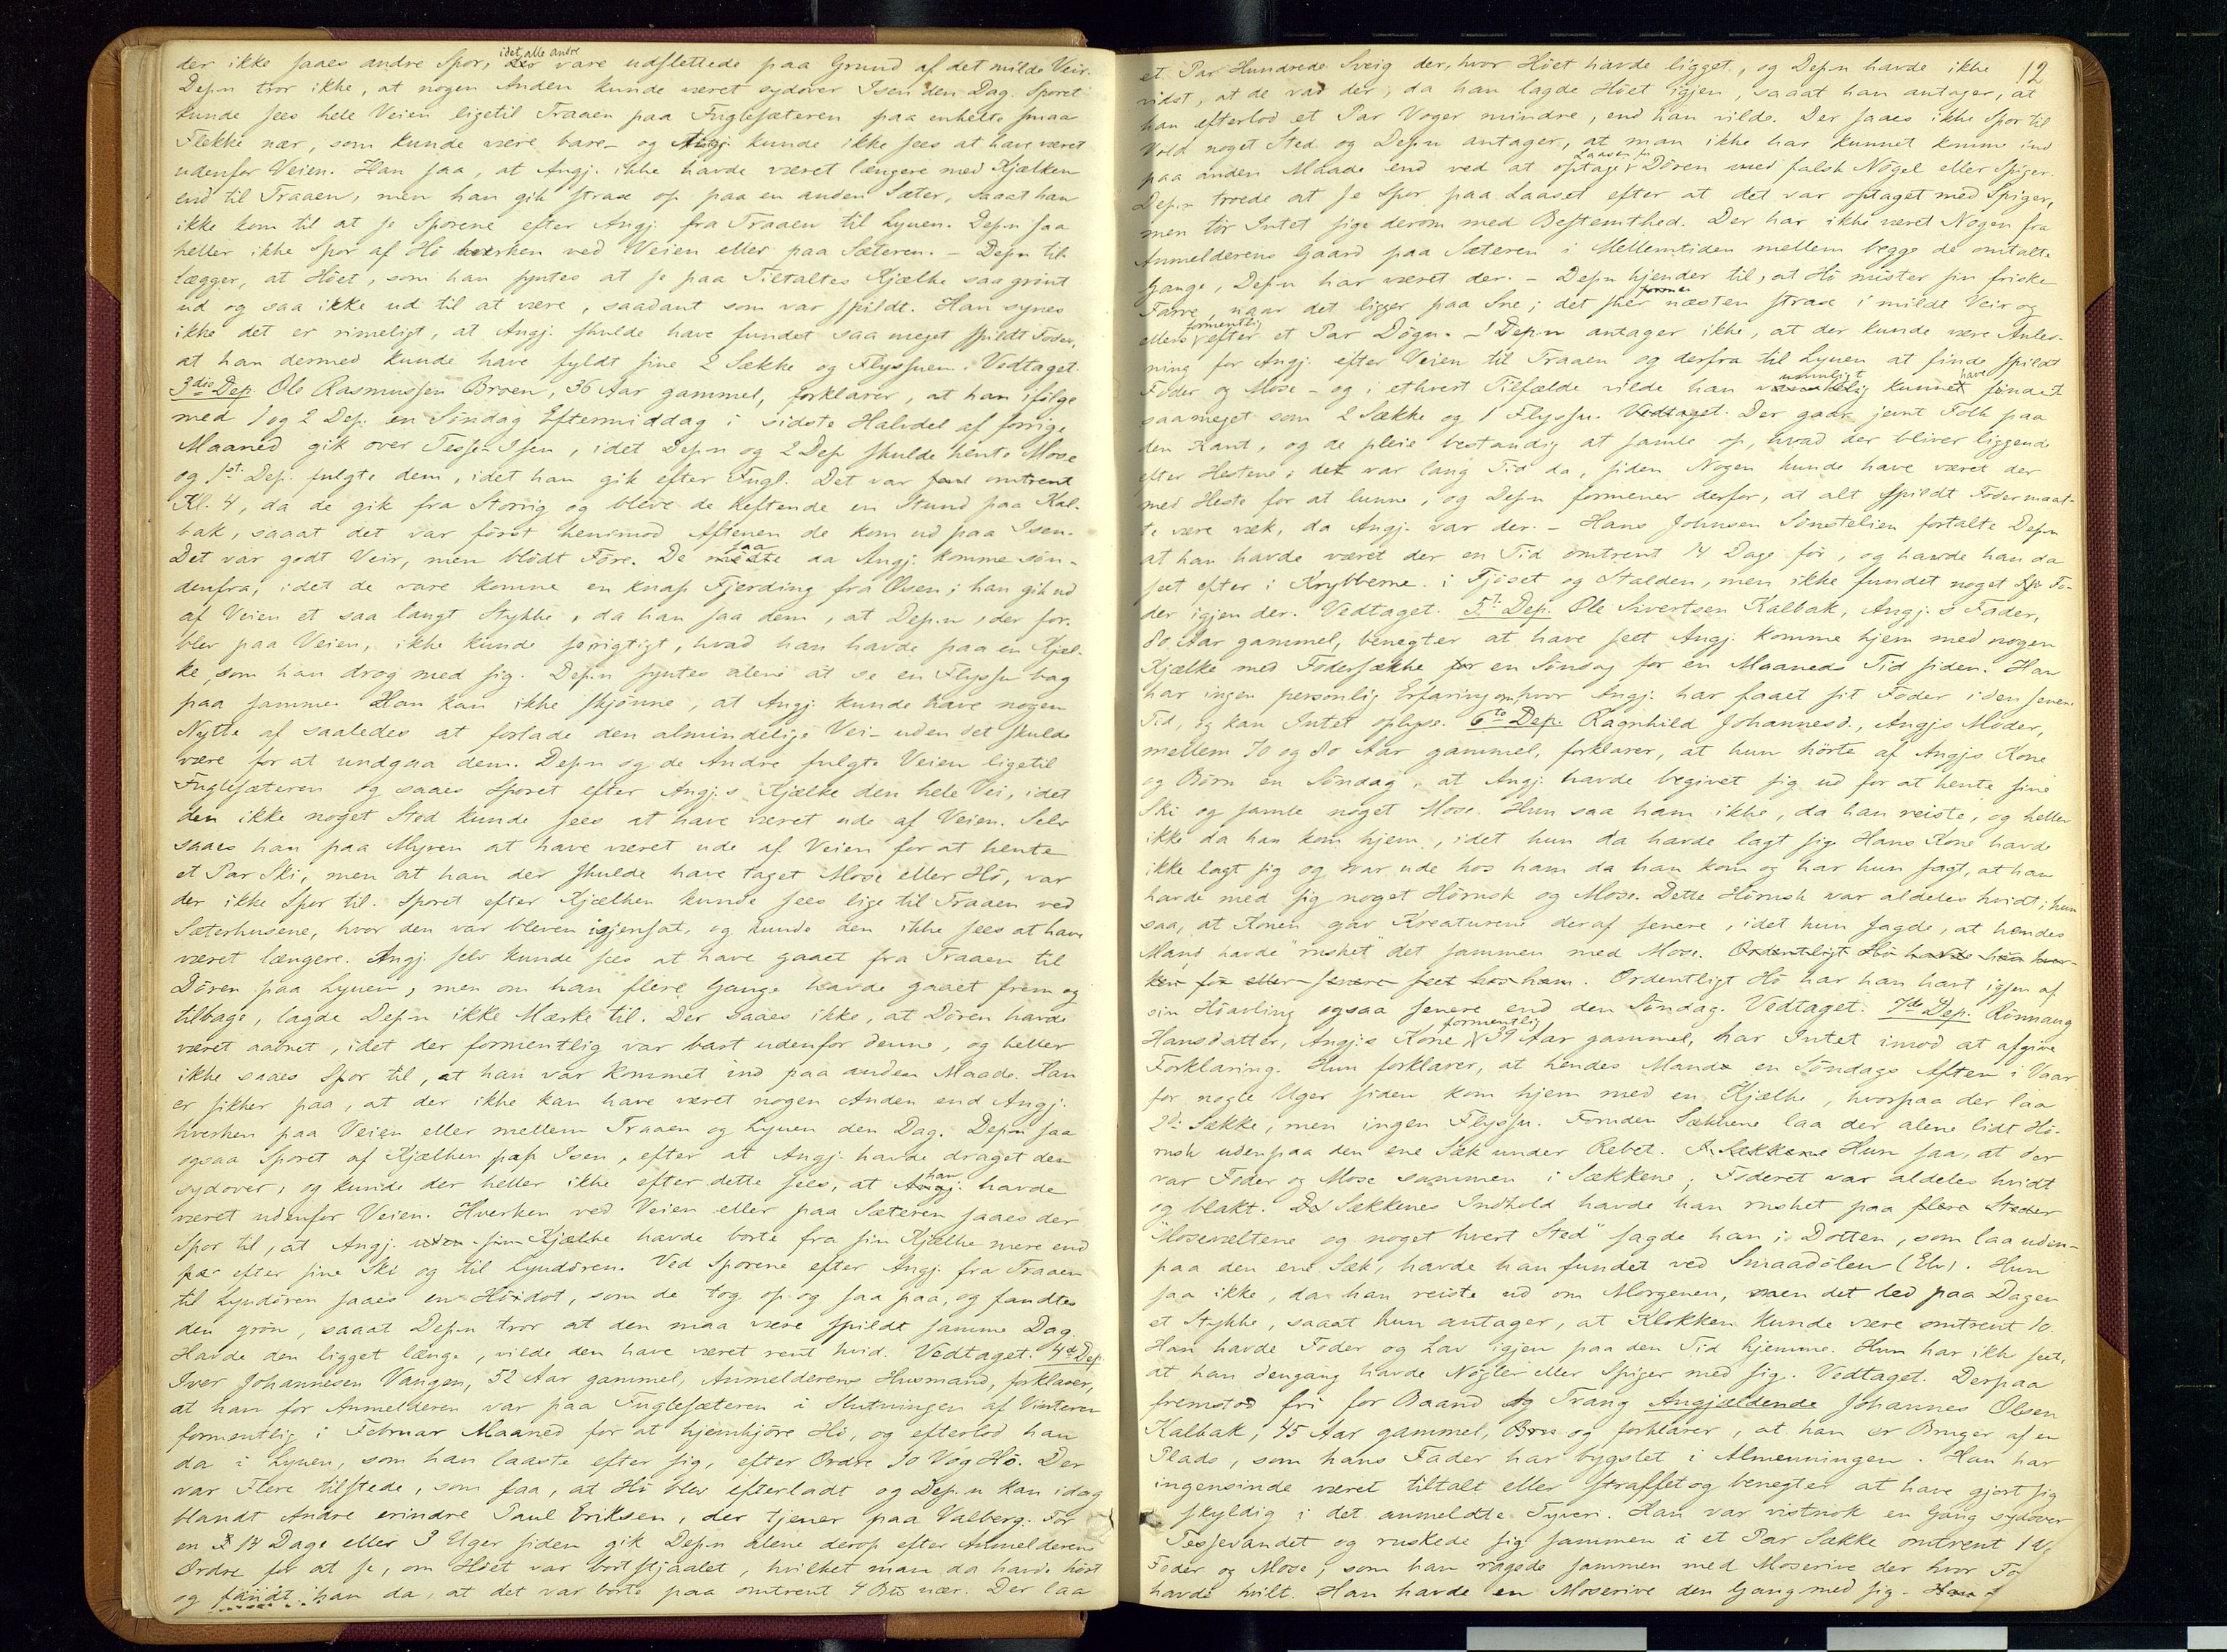 der ikke saaes andre Spor, idet alle andre vare udslettede paa Grund af det milde Veir.
Dep.n tror ikke, at nogen Anden kunde været sydover Isen den Dag. Sporet
kunde sees hele Veien ligetil Traaen paa Fuglesæteren paa enkelte smaa
Flekke nær, som kunde være bare – og Angj. kunde ikke sees at have været
udenfor Veien. Han saa, at Angj. ikke havde været længere med Kjælken
end til Traaen, men han gik strax op paa en anden Sæter, saaat han
ikke kom til at se Sporene efter Angj. fra Traaen til Lyuen. Dep.n saa
heller ikke Spor af Hö hverken ved Veien eller paa Sæteren. – Dep.n til-
lægger, at Höet, som han syntes at se paa Tiltaltes Kjælke saa grönt
ud og saa ikke ud til at være, saadant som var spildt. Han synes
ikke det er rimeligt, at Angj. skulde have fundet saa meget spildt Foder,
at han dermed kunde have fyldt sine 2 Sække og Flyssuen. Vedtaget.
3die Dep. Ole Rasmussen Broen, 36 Aar gammel, forklarer, at han ifölge
med 1 og 2 Dep. en Söndag Eftermiddag i sidste Halvdel af forrige
Maaned gik over Tesse-Isen, idet Dep.n og 2 Dep skulde hente Mose
og 1st. Dep. fulgte dem, idet han gik efter Fugl. Det var omtrent
Kl. 4, da de gik fra Storvig og bleve de heftende en Stund paa Kal-
bak, saaat det var först henimod Aftenen de kom ud paa Isen.
Det var godt Veir, men blödt Före. De saa da Angj. komme sön-
denfra, idet de vare komne en knap Fjerding fra Osen; han gik ud
af Veien et saa langt Stykke, da han saa dem, at Dep.n, der for-
blev paa Veien, ikke kunde se rigtigt, hvad han havde paa en Kjæl-
ke, som han drog med sig. Dep.n syntes alene at se en Flyssu bag
paa samme. Han kan ikke skjönne, at Angj. kunde have nogen
Nytte af saaledes at forlade den almindelige Vei – uden det skulde
være for at undgaa dem. Dep.n og de Andre fulgte Veien ligetil
Fuglesæteren og saaes Sporet efter Angj.s Kjælke den hele Vei, idet
den ikke noget Sted kunde sees at have været ude af Veien. Selv
saaes han paa Myren at have været ude af Veien for at hente
et Par Ski, men at han der skulde have taget Mose eller Hö, var
der ikke Spor til. Sporet efter Kjælken kunde sees lige til Traaen ved
Sæterhusene, hvor den var bleven igjensat, og kunde den ikke sees at have
været længere. Angj. selv kunde sees at have gaaet fra Traaen til
Dören paa Lyuen, men om han flere Gange havde gaaet frem og
tilbage, lagde Dep.n ikke Mærke til. Der saaes ikke, at Dören havde
været aabnet, idet der formentlig var bart udenfor denne, og heller
ikke saaes Spor til, at han var kommet ind paa anden Maade. Han
er sikker paa, at der ikke kan have været nogen Anden end Angj.
hverken paa Veien eller mellem Traaen og Lyuen den Dag. Dep.n saa
ogsaa Sporet af Kjælken paa Isen, efter at Angj. havde draget den
sydover, og kunde der heller ikke efter dette sees, at han havde
været udenfor Veien. Hverken ved Veien eller paa Sæteren saaes der
Spor til, at Angj. havde borte fra sin Kjælke mere end
efter sine Ski og til Lyudören. Ved Sporene efter Angj. fra Traaen
til Lyudören saaes en Hödot, som de tog op og saa paa, og fandtes
den grön, saaat Dep.n tror at den maa være spildt samme Dag.
Havde den ligget længe, vilde den have været rent hvid. Vedtaget. 4de Dep.
Iver Johannesen Vangen, 52 Aar gammel, Anmelderens Husmand, forklarer,
at han for Anmelderen var paa Fuglesæteren i Slutningen af Vinteren
formentlig i Februar Maaned for at hjemkjöre Hö, og efterlod han
da i Lyuen, som han laaste efter sig, efter Ordre 10 Vog Hö. Der
var Flere tilstede, som saa, at Hö blev efterladt og Dep.n kan idag
blandt Andre erindre Paul Eriksen, der tjener paa Valberg. For
en 14 Dage eller 3 Uger siden gik Dep.n alene derop efter Anmelderens
Ordre for at se, om Höet var bortstjaalet, hvilket man da havde hört
og fandt han da, at det var borte paa omtrent 4 nær. Der laa
12
et Par Hundrede Sveig der, hvor Höet havde ligget, og Dep.n havde ikke
vidst, at de var der, da han lagde Höet igjen, saaat han antager, at
han efterlod et Par Voger mindre, end han vilde. Der saaes ikke Spor til
Vold noget Sted og Dep.n antager, at man ikke har kunnet komme ind
paa anden Maade end ved at optage Laasen for Dören med falsk Nögel eller Spiger.
Dep.n troede at se Spor paa Laaset efter at det var optaget med Spiger,
men tör Intet sige derom med Bestemthed. Der har ikke været Nogen fra
Anmelderens Gaard paa Sæteren i Mellemtiden mellem begge de omtalte
Gange, Dep.n har været der. – Dep.n kjender til, at Hö mister sin friske
Farve, naar det ligger paa Sne; det sker næsten strax i mildt Veir og
ellers formentlig efter et Par Dögn. – Dep.n antager ikke, at der kunde være Anled-
ning for Angj. efter Veien til Traaen og derfra til Lyuen at finde spildt
Foder og Mose – og i ethvert Tilfælde vilde han umuligt kunnet have fundet
saameget som 2 Sække og 1 Flyssu. Der gaar jevnt Folk paa
den Kant, og de pleie bestandig at samle op, hvad der bliver liggende
efter Hestene; det var lang Tid da, siden Nogen kunde have været der
med Heste for at lunne, og Dep.n formener derfor, at alt spildt Foder maat-
te være væk, da Angj. var der. – Hans Johnsen Sönstelien fortalte Dep.n
at han havde været der en Tid omtrent 14 Dage för, og havde han da
seet efter i Krybberne i Fjöset og Stalden, men ikke fundet noget Fo-
der igjen der. Vedtaget. 5te Dep. Ole Sivertsen Kalbak, Angj.s Fader,
80 Aar gammel, benegter at have seet Angj. komme hjem med nogen
Kjælke med Fodersække en Söndag for en Maaneds Tid siden. Han
har ingen personlig Erfaring om hvor Angj. har faaet sit Foder i den senere
Tid, og kan Intet oplyse. 6te Dep. Ragnhild Johannesd., Angjs Moder,
mellem 70 og 80 Aar gammel, forklarer, at hun hörte af Angjs Kone
og Börn en Söndag, at Angj. havde begivet sig ud for at hente sine
Ski og samle noget Mose. Hun saa ham ikke, da han reiste, og heller
ikke da han kom hjem, idet hun da havde lagt sig. Hans Kone havde
ikke lagt sig og var ude hos ham da han kom og har hun sagt, at han
havde med sig noget Hörusk og Mose. Dette Hörusk var aldeles hvidt; hun
saa, at Konen gav Kreaturene deraf senere, idet hun sagde, at hendes
Mand havde "rusket" det sammen med Mose. Ordentligt Hö havde hun hver-
ken för eller senere seet hos ham. Ordentligt Hö har han havt igjen af
sin Höavling ogsaa senere end den Söndag. Vedtaget. 7de Dep. Rönnaug
Hansdatter, Angj.s Kone, formentlig 39 Aar gammel, har Intet imod at afgive
Forklaring. Hun forklarer, at hendes Mand en Söndags Aften i Vaar
for nogle Uger siden kom hjem med en Kjælke, hvorpaa der laa
2de Sække, men ingen Flyssu. Foruden Sækkene laa der alene lidt Hö-
rusk udenpaa den ene Sæk under Rebet. Hun saa, at der
var Foder og Mose sammen i Sækkene; Foderet var aldeles hvidt
og blakt. Sækkenes Indhold havde han rusket paa flere Steder
"Moseveltene og noget hvert Sted" sagde han; Dotten, som laa uden-
paa den ene Sæk, havde han fundet ved Smaadölen (Elv). Hun
saa ikke, da han reiste ud om Morgenen, men det led paa Dagen
et Stykke, saaat hun antager, at Klokken kunde være omtrent 10.
Han havde Foder og Lav igjen paa den Tid hjemme. Hun har ikke seet,
at han dengang havde Nögler eller Spiger med sig. Vedtaget. Derpaa
fremstod fri for Baand og Tvang Angjældende Johannes Olsen
Kalbak, 45 Aar gammel, og forklarer, at han er Bruger af en
Plads, som hans Fader har bygslet i Almenningen. Han har
ingensinde været tiltalt eller straffet og benegter at have gjort sig
skyldig i det anmeldte Tyveri. Han var vistnok en Gang sydover
Tessevandet og ruskede sig sammen i et Par Sække omtrent 1
Foder og Mose, som han ragede sammen med Moserive der hvor Fo
havde hvilt. Han havde en Moserive den Gang med sig.